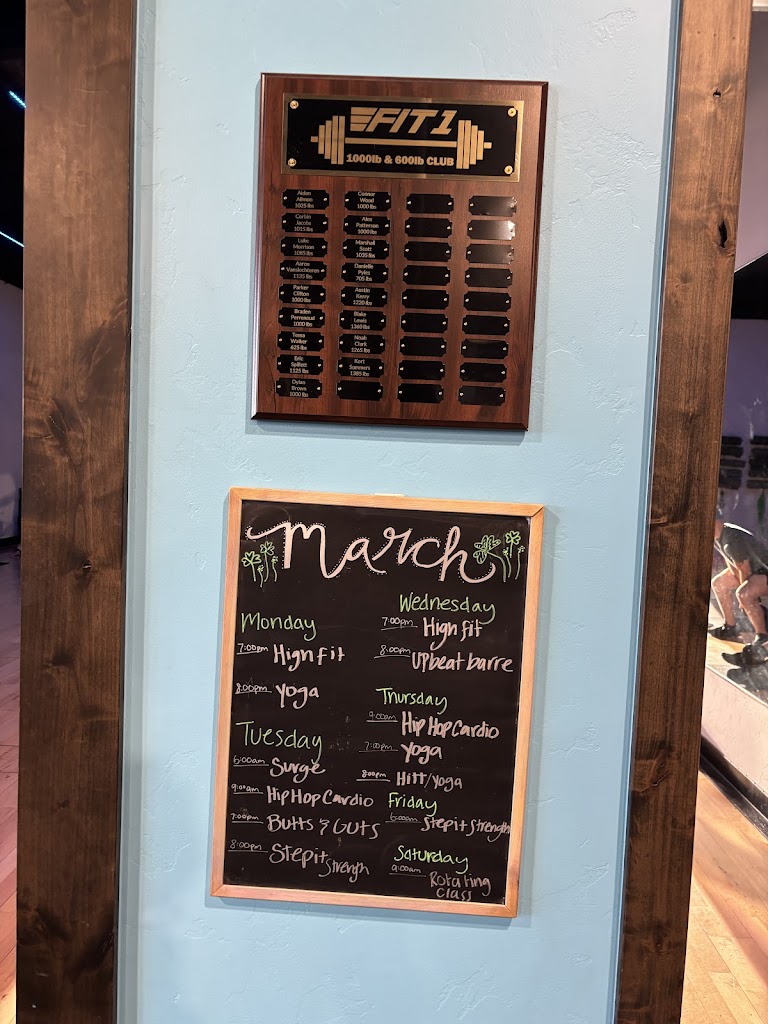 FIT 1
1000lb & 600lb CLUB
Aiden
Allmon
1025 lbs
Corbin
Jacobs
1015 lbs
Luke
Morrison
1085 lbs
Aaron
Vanslochteren
1135 lbs
Parker
Clifton
1000 lbs
Braden
Perrenoud
1000 lbs
Tessa
Walker
625 lbs
Eric
Spillett
1125 lbs
Dylan
Brown
1000 lbs
Connor
Wood
1000 lbs
Alex
Patterson
1000 lbs
Marshall
Scott
1035 lbs
Danielle
Pyles
705 lbs
Austin
Kerry
1220 lbs
Blake
Lewis
1360 lbs
Noah
Clark
1265 lbs
Kort
Summers
1385 lbs
March
Monday
7:00pm High fit
8:00pm Yoga
Tuesday
6:00am Surge
9:00am Hip Hop Cardio
7:00pm Butts & Guts
8:00pm Step it
Strength
Wednesday
7:00pm High fit
8:00pm Upbeat barre
Thursday
9:00am Hip Hop Cardio
7:00pm Yoga
8:00pm Hitt/Yoga
Friday
6:00am Step it Strength
Saturday
9:00am Rotating
Class